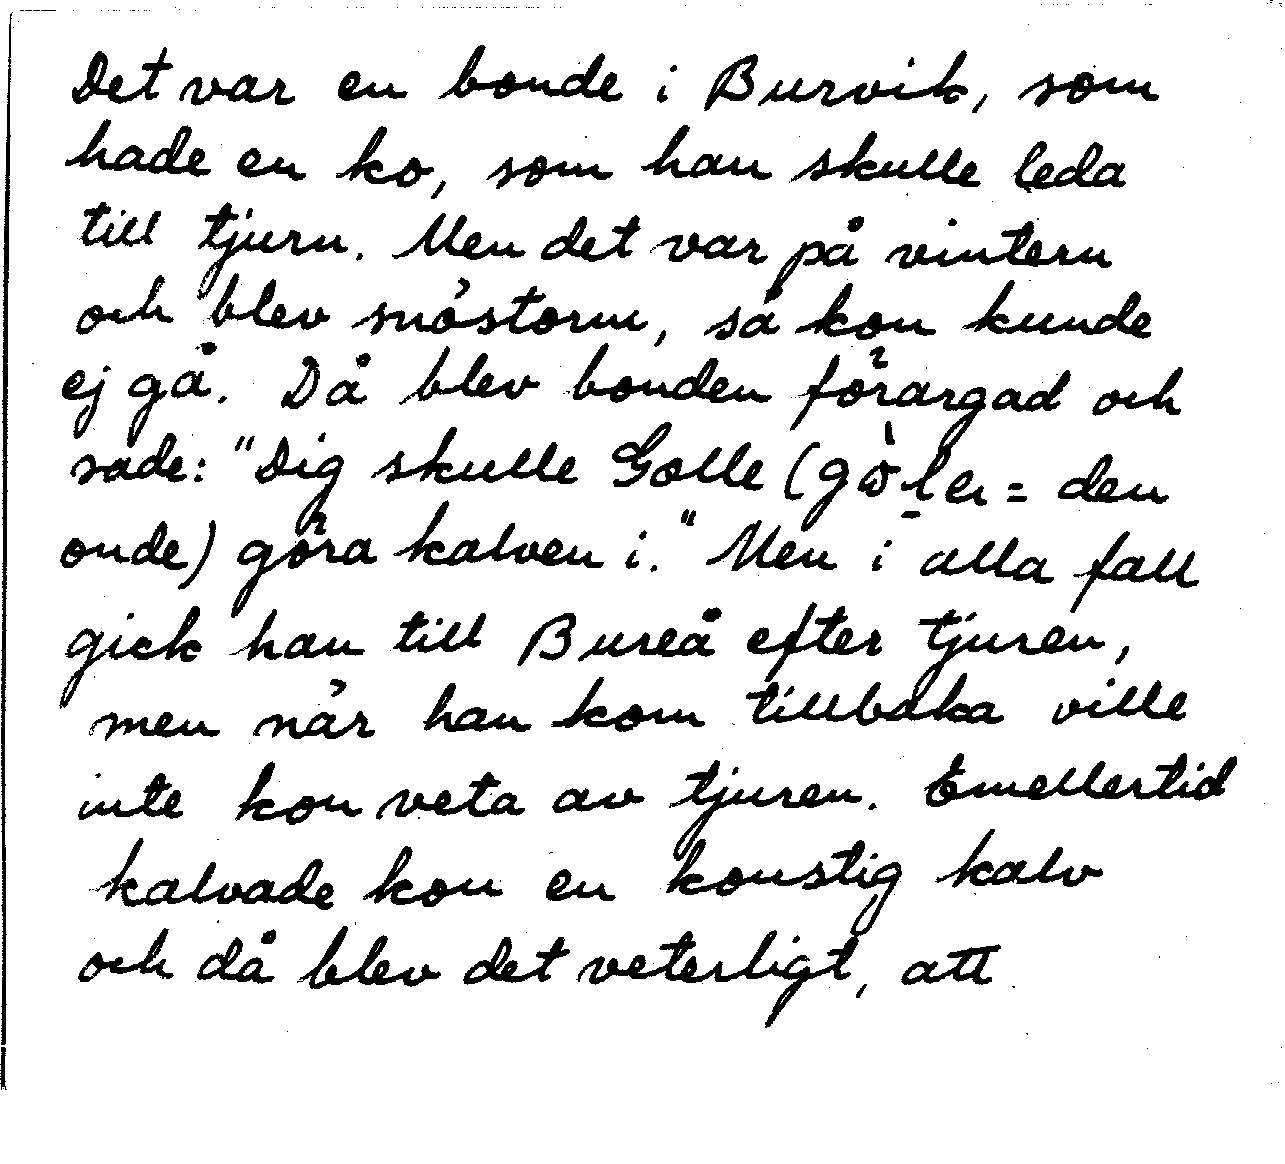 Det var en bonde i Burvik, som
hade en ko, som han skulle leda
till tjurn. Men det var på vintern
och blev snöstorm, så kon kunde
ej gå. Då blev bonden förargad och
sade: "Dig skulle Golle (gòlen = den
onde) göra kalven i." Men i alla fall
gick han till Bureå efter tjuren,
men när han kom tillbaka ville
inte kon veta av tjuren. Emellertid
kalvade kon en konstig kalv
och då blev det veterligt, att